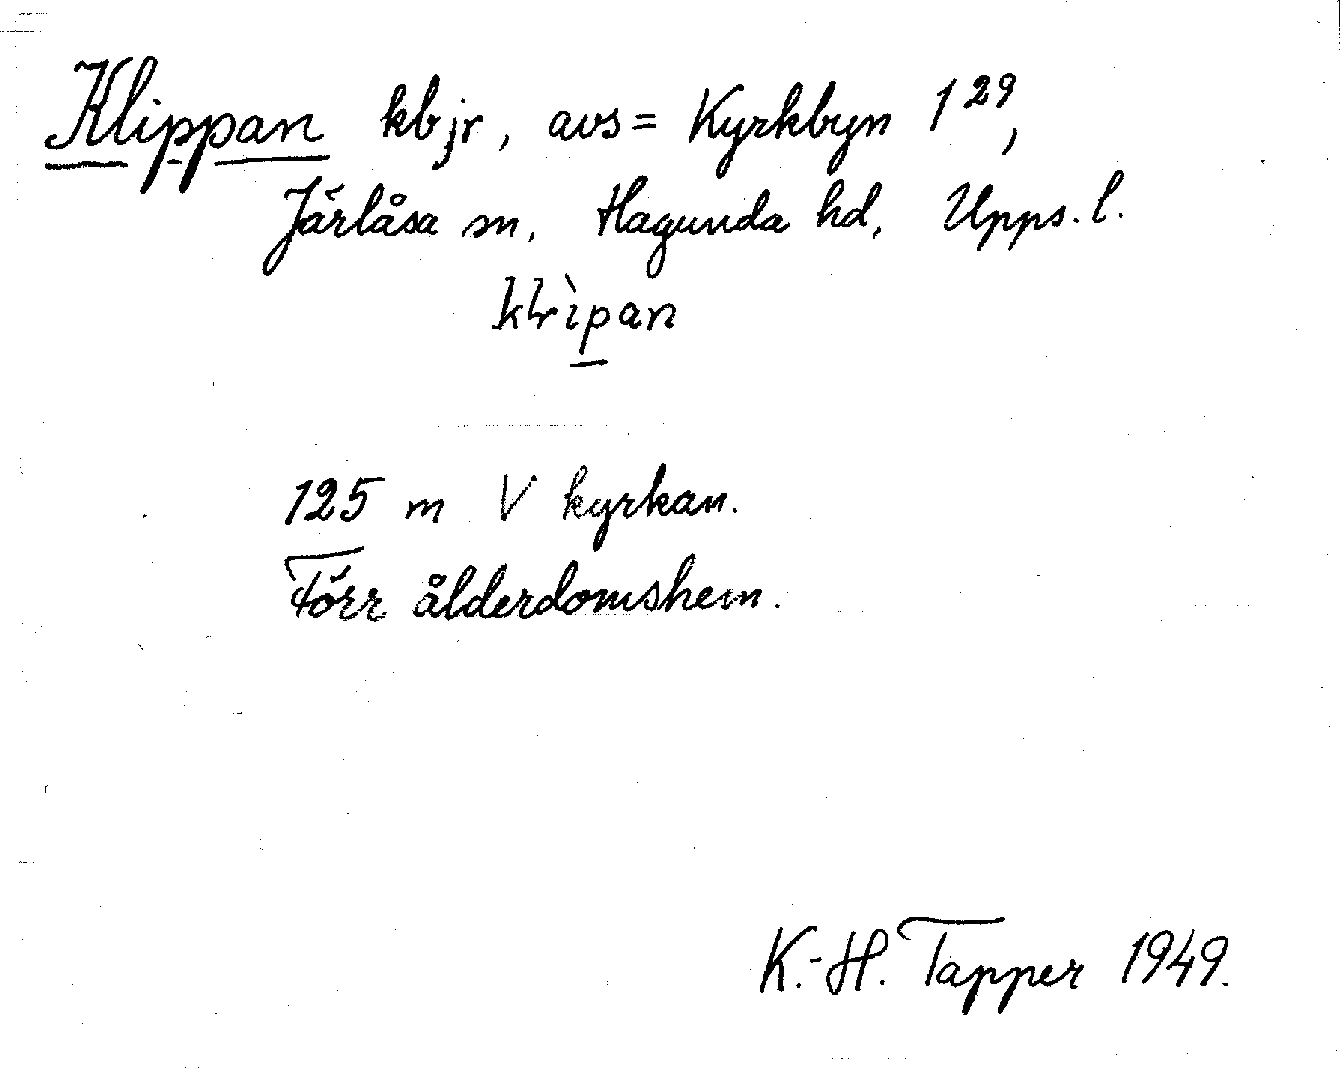 Klippan kbjr, avs = Kyrkbyn 1²⁹,
Järlåsa sn, Hagunda hd, Upps. l.
125 m V kyrkan.
Förr ålderdomshem.
K.-H. Tapper 1949.